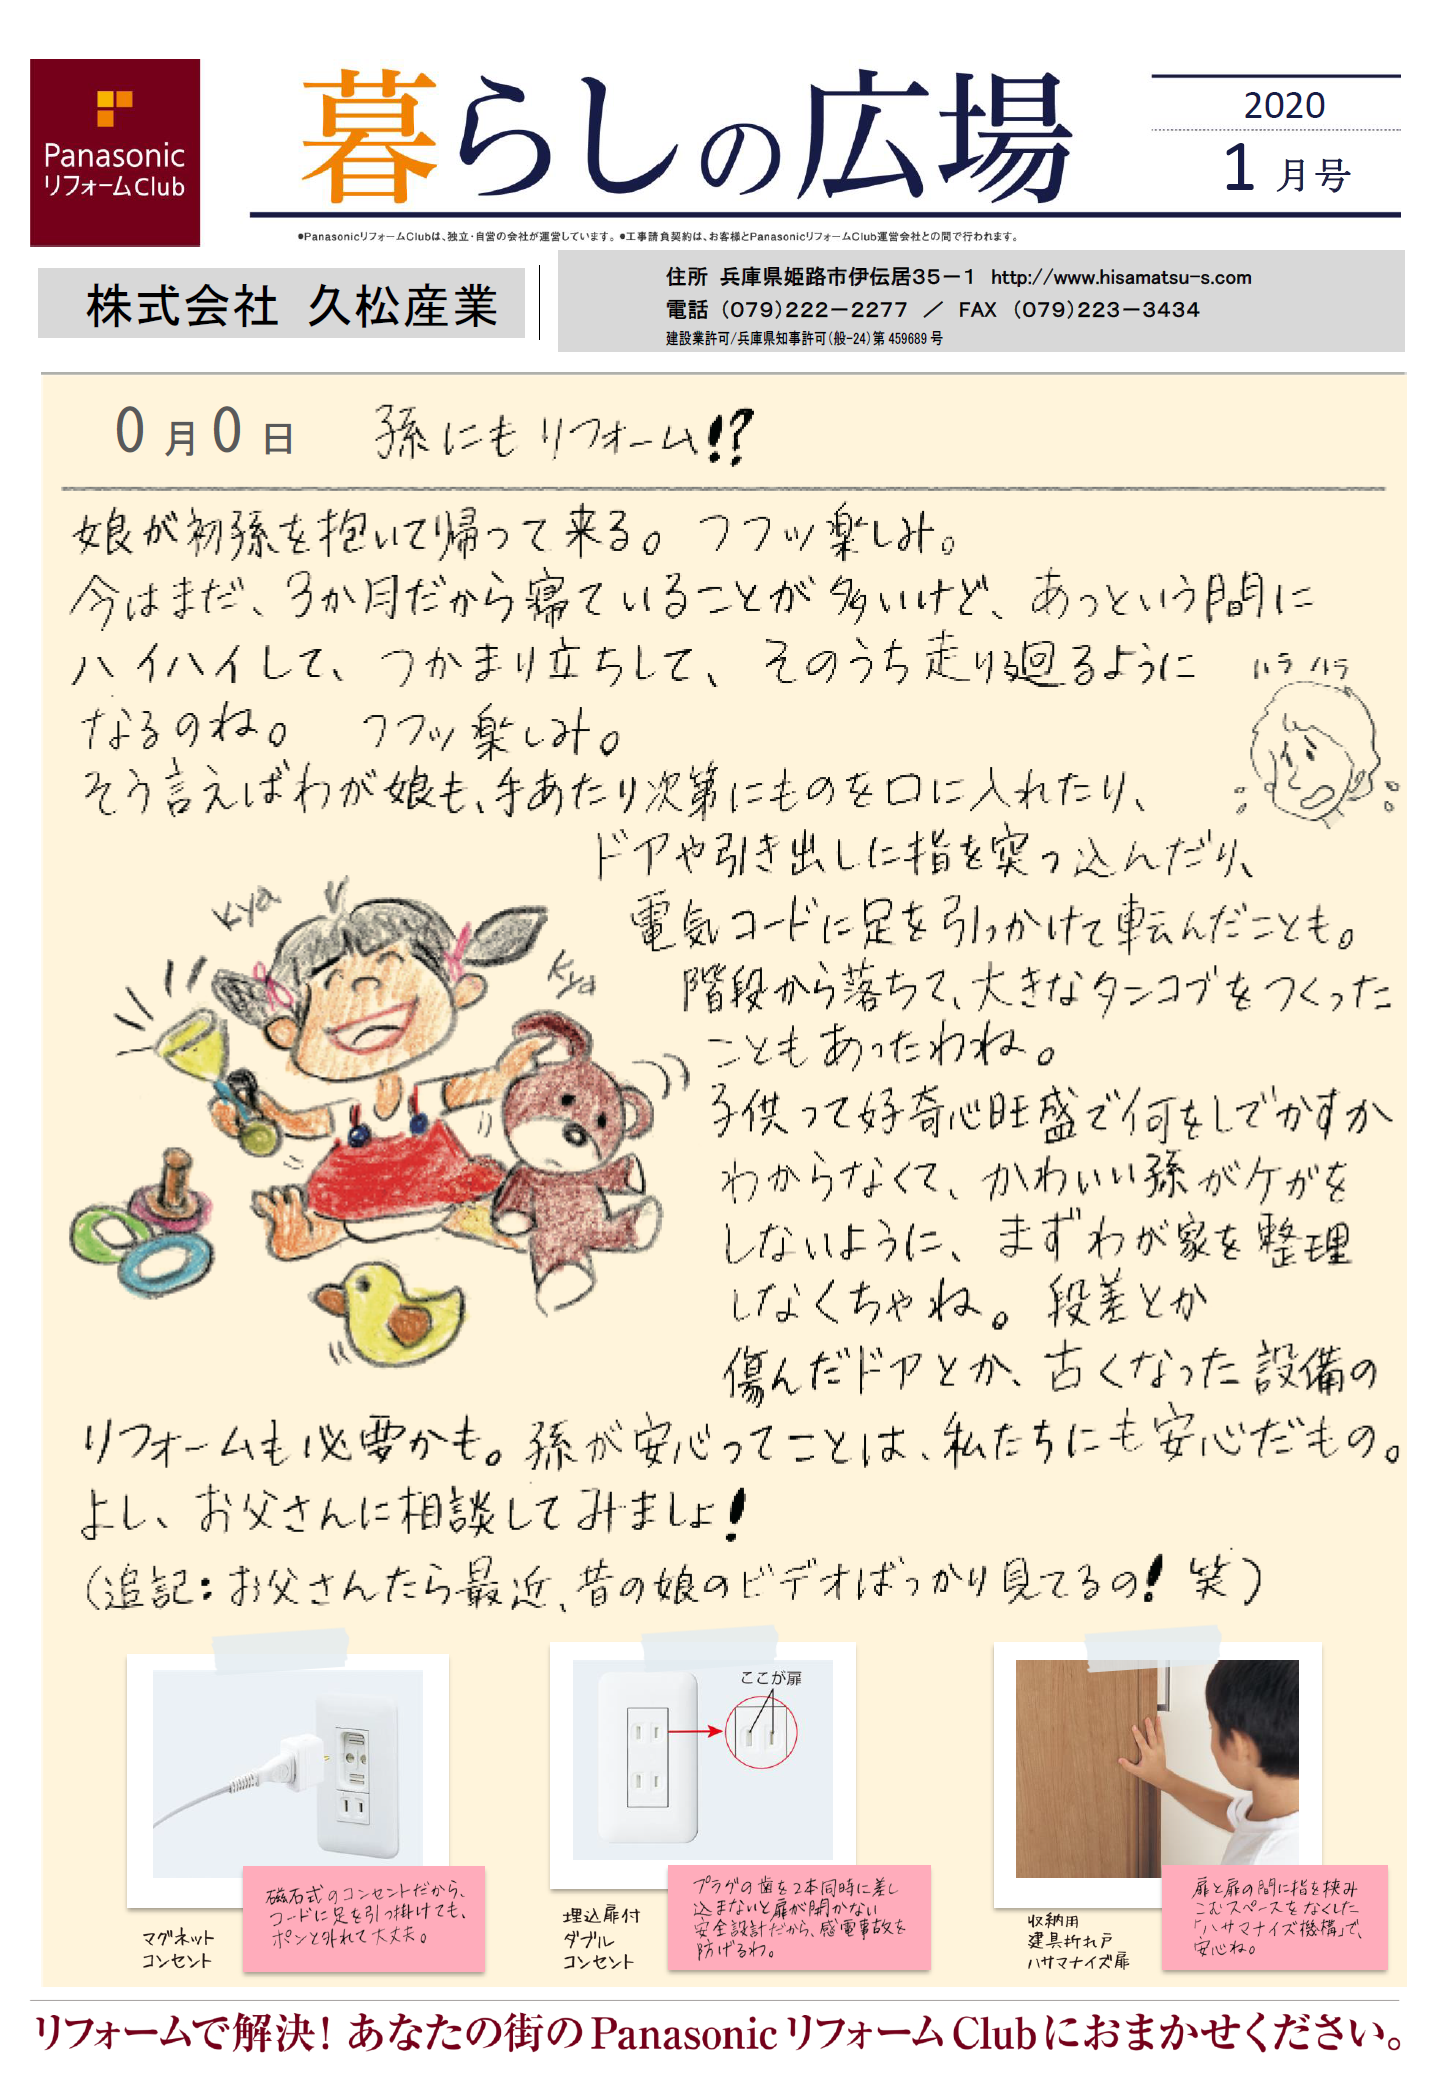 Panasonic
リフォームClub
暮らしの広場
2020
1 月号
●PanasonicリフォームClubは、独立・自営の会社が運営しています。●工事請負契約は、お客様とPanasonicリフォームClub運営会社との間で行われます。
株式会社 久松産業
住所 兵庫県姫路市伊伝居35-1 http://www.hisamatsu-s.com
電話 (079)222-2277 / FAX (079)223-3434
建設業許可/兵庫県知事許可(般-24)第459689号
0月0日 孫にもリフォーム!?
娘が初孫を抱いて帰って来る。フフッ楽しみ。
今はまだ、3か月だから寝ていることが多いけど、あっという間に
ハイハイして、つかまり立ちして、そのうち走り廻るように
なるのね。フフッ楽しみ。
ハラハラ
そう言えばわが娘も、手あたり次第にものを口に入れたり、
ドアや引き出しに指を突っ込んだり、
電気コードに足を引っかけて転んだことも。
階段から落ちて、大きなタンコブをつくった
こともあったわね。
子供って好奇心旺盛で何をしでかすか
わからなくて、かわいい孫がケガを
しないように、まずわが家を整理
しなくちゃね。段差とか
傷んだドアとか、古くなった設備の
リフォームも必要かも。孫が安心ってことは、私たちにも安心だもの。
よし、お父さんに相談してみましょ!
(追記:お父さんたら最近、昔の娘のビデオばっかり見てるの!笑)
kya
kya
マグネット
コンセント
磁石式のコンセントだから、
コードに足を引っ掛けても、
ポンと外れて大丈夫。
ここが扉
埋込扉付
ダブル
コンセント
プラグの歯を2本同時に差し
込まないと扉が開かない
安全設計だから、感電事故を
防げるわ。
収納用
建具折れ戸
ハサマナイズ扉
扉と扉の間に指を挟み
こむスペースをなくした
「ハサマナイズ機構」で、
安心ね。
リフォームで解決!あなたの街のPanasonicリフォームClubにおまかせください。